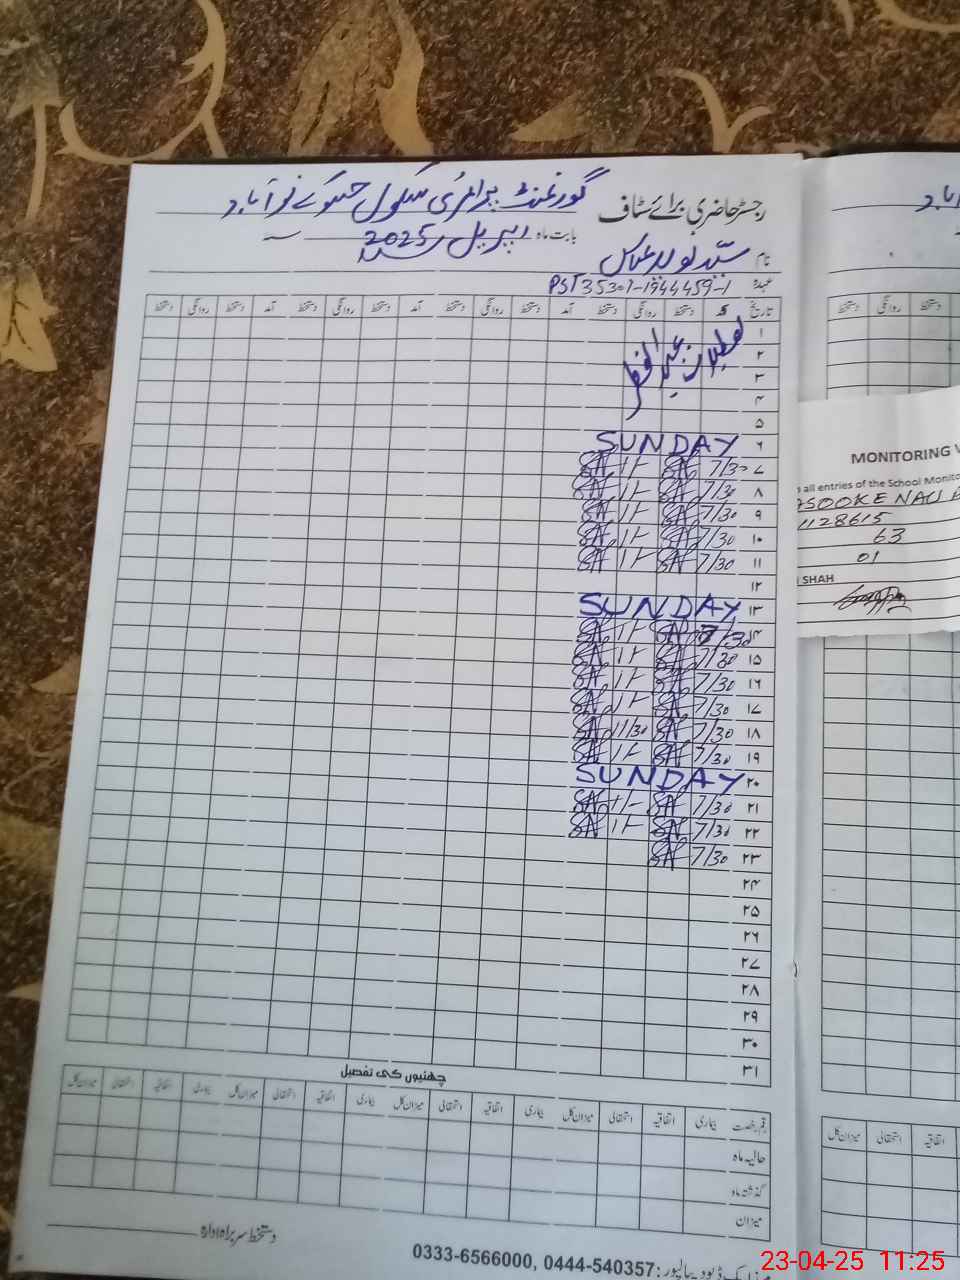 رجسٹر حاضری برائے سٹاف گورنمنٹ پرائمری سکول جسوکے نول آباد
بابت ماہ اپریل 2025
نام سید نوید عباس
عہدہ PST 35301-1944459-1
تاریخ آمد دستخط روانگی دستخط آمد دستخط روانگی دستخط آمد دستخط روانگی دستخط آمد دستخط روانگی دستخط
۱ تعطیلات عید الفطر
۲
۳
۴
۵
۶ SUNDAY
۷ 7/30 1/-
۸ 7/30 1/-
۹ 7/30 1/-
۱۰ 7/30 1/-
۱۱ 7/30 1/-
۱۲
۱۳ SUNDAY
۱۴ 7/30 1/-
۱۵ 7/30 1/-
۱۶ 7/30 1/-
۱۷ 7/30 1/-
۱۸ 7/30 11/30
۱۹ 7/30 1/-
۲۰ SUNDAY
۲۱ 7/30 1/-
۲۲ 7/30 1/-
۲۳ 7/30
۲۴
۲۵
۲۶
۲۷
۲۸
۲۹
۳۰
۳۱
چھٹیوں کی تفصیل
رقم رخصت بیماری اتفاقیہ استحقاقی میزان کل بیماری اتفاقیہ استحقاقی میزان کل بیماری اتفاقیہ استحقاقی میزان کل بیماری اتفاقیہ استحقاقی میزان کل
حالیہ ماہ
گذشتہ ماہ
میزان
دستخط سربراہ ادارہ
0333-6566000, 0444-540357:
دستخط روانگی دستخط
MONITORING V
all entries of the School Monito
ASOOKE NAUL
1128615
63
01
SHAH
میزان کل استحقاقی اتفاقیہ
23-04-25 11:25